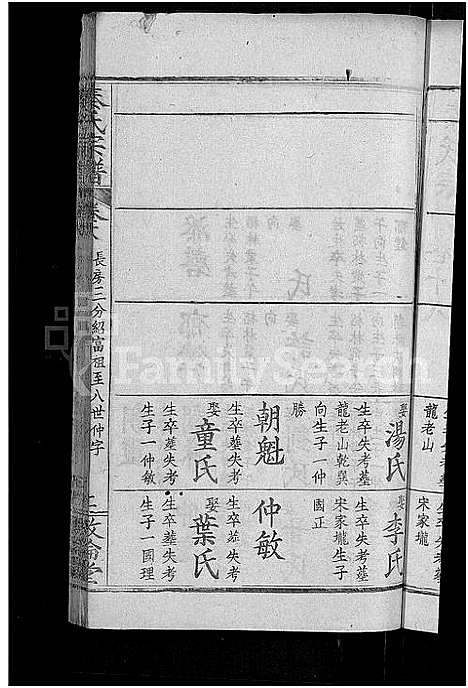 龍老山
宋家壠
娶湯氏
生卒失考葬
龍老山乾巽
向生子一仲
勝
朝魁
生卒葬失考
娶童氏
生卒葬失考
生子一仲敏
娶李氏
生卒失考葬
宋家壠生子
國正
仲敏
生卒葬失考
娶葉氏
生卒葬失考
生子一國理
秦氏宗譜
長房三分紹富祖至八世仲字
敦倫堂
FamilySearch